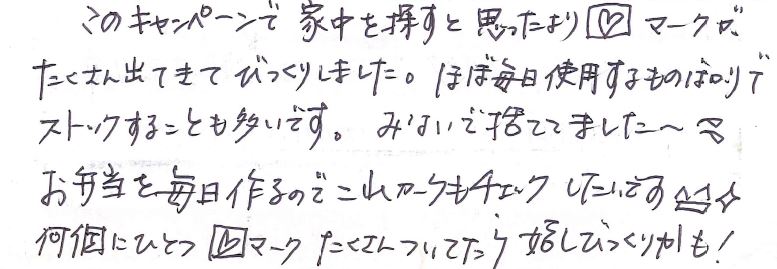 このキャンペーンで家中を探すと思ったより♡マークが
たくさん出てきてびっくりしました。ほぼ毎日使用するものばかりで
ストックすることも多いです。みないで捨ててました〜
お弁当を毎日作るのでこれからもチェックしたいです
何個にひとつ♡マークたくさんついてたら嬉しびっくりかも!